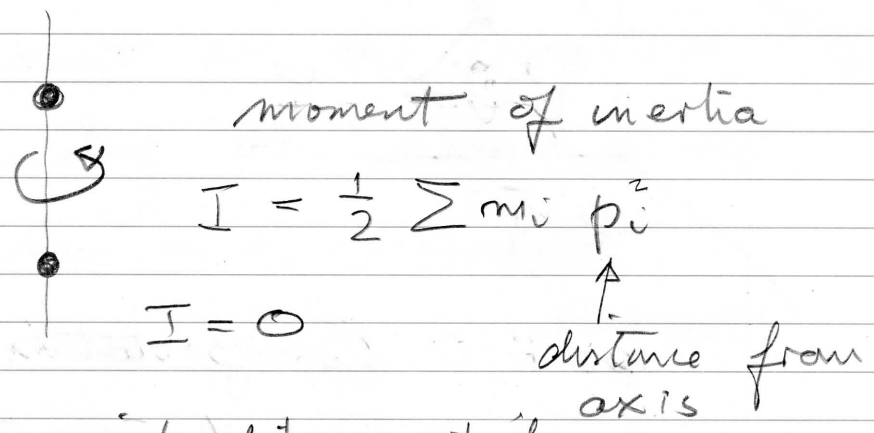 moment of inertia
I = 1/2 ∑ mᵢ pᵢ²
I = 0
distance from
axis